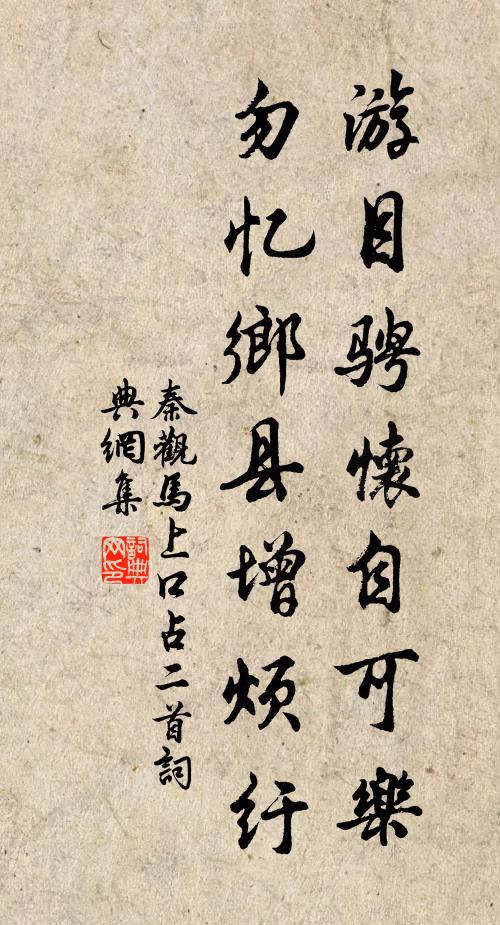 游目骋懷自可樂
勿忆鄉县增烦纡
秦觀馬上口占二首詞
典網集
詞典
网印